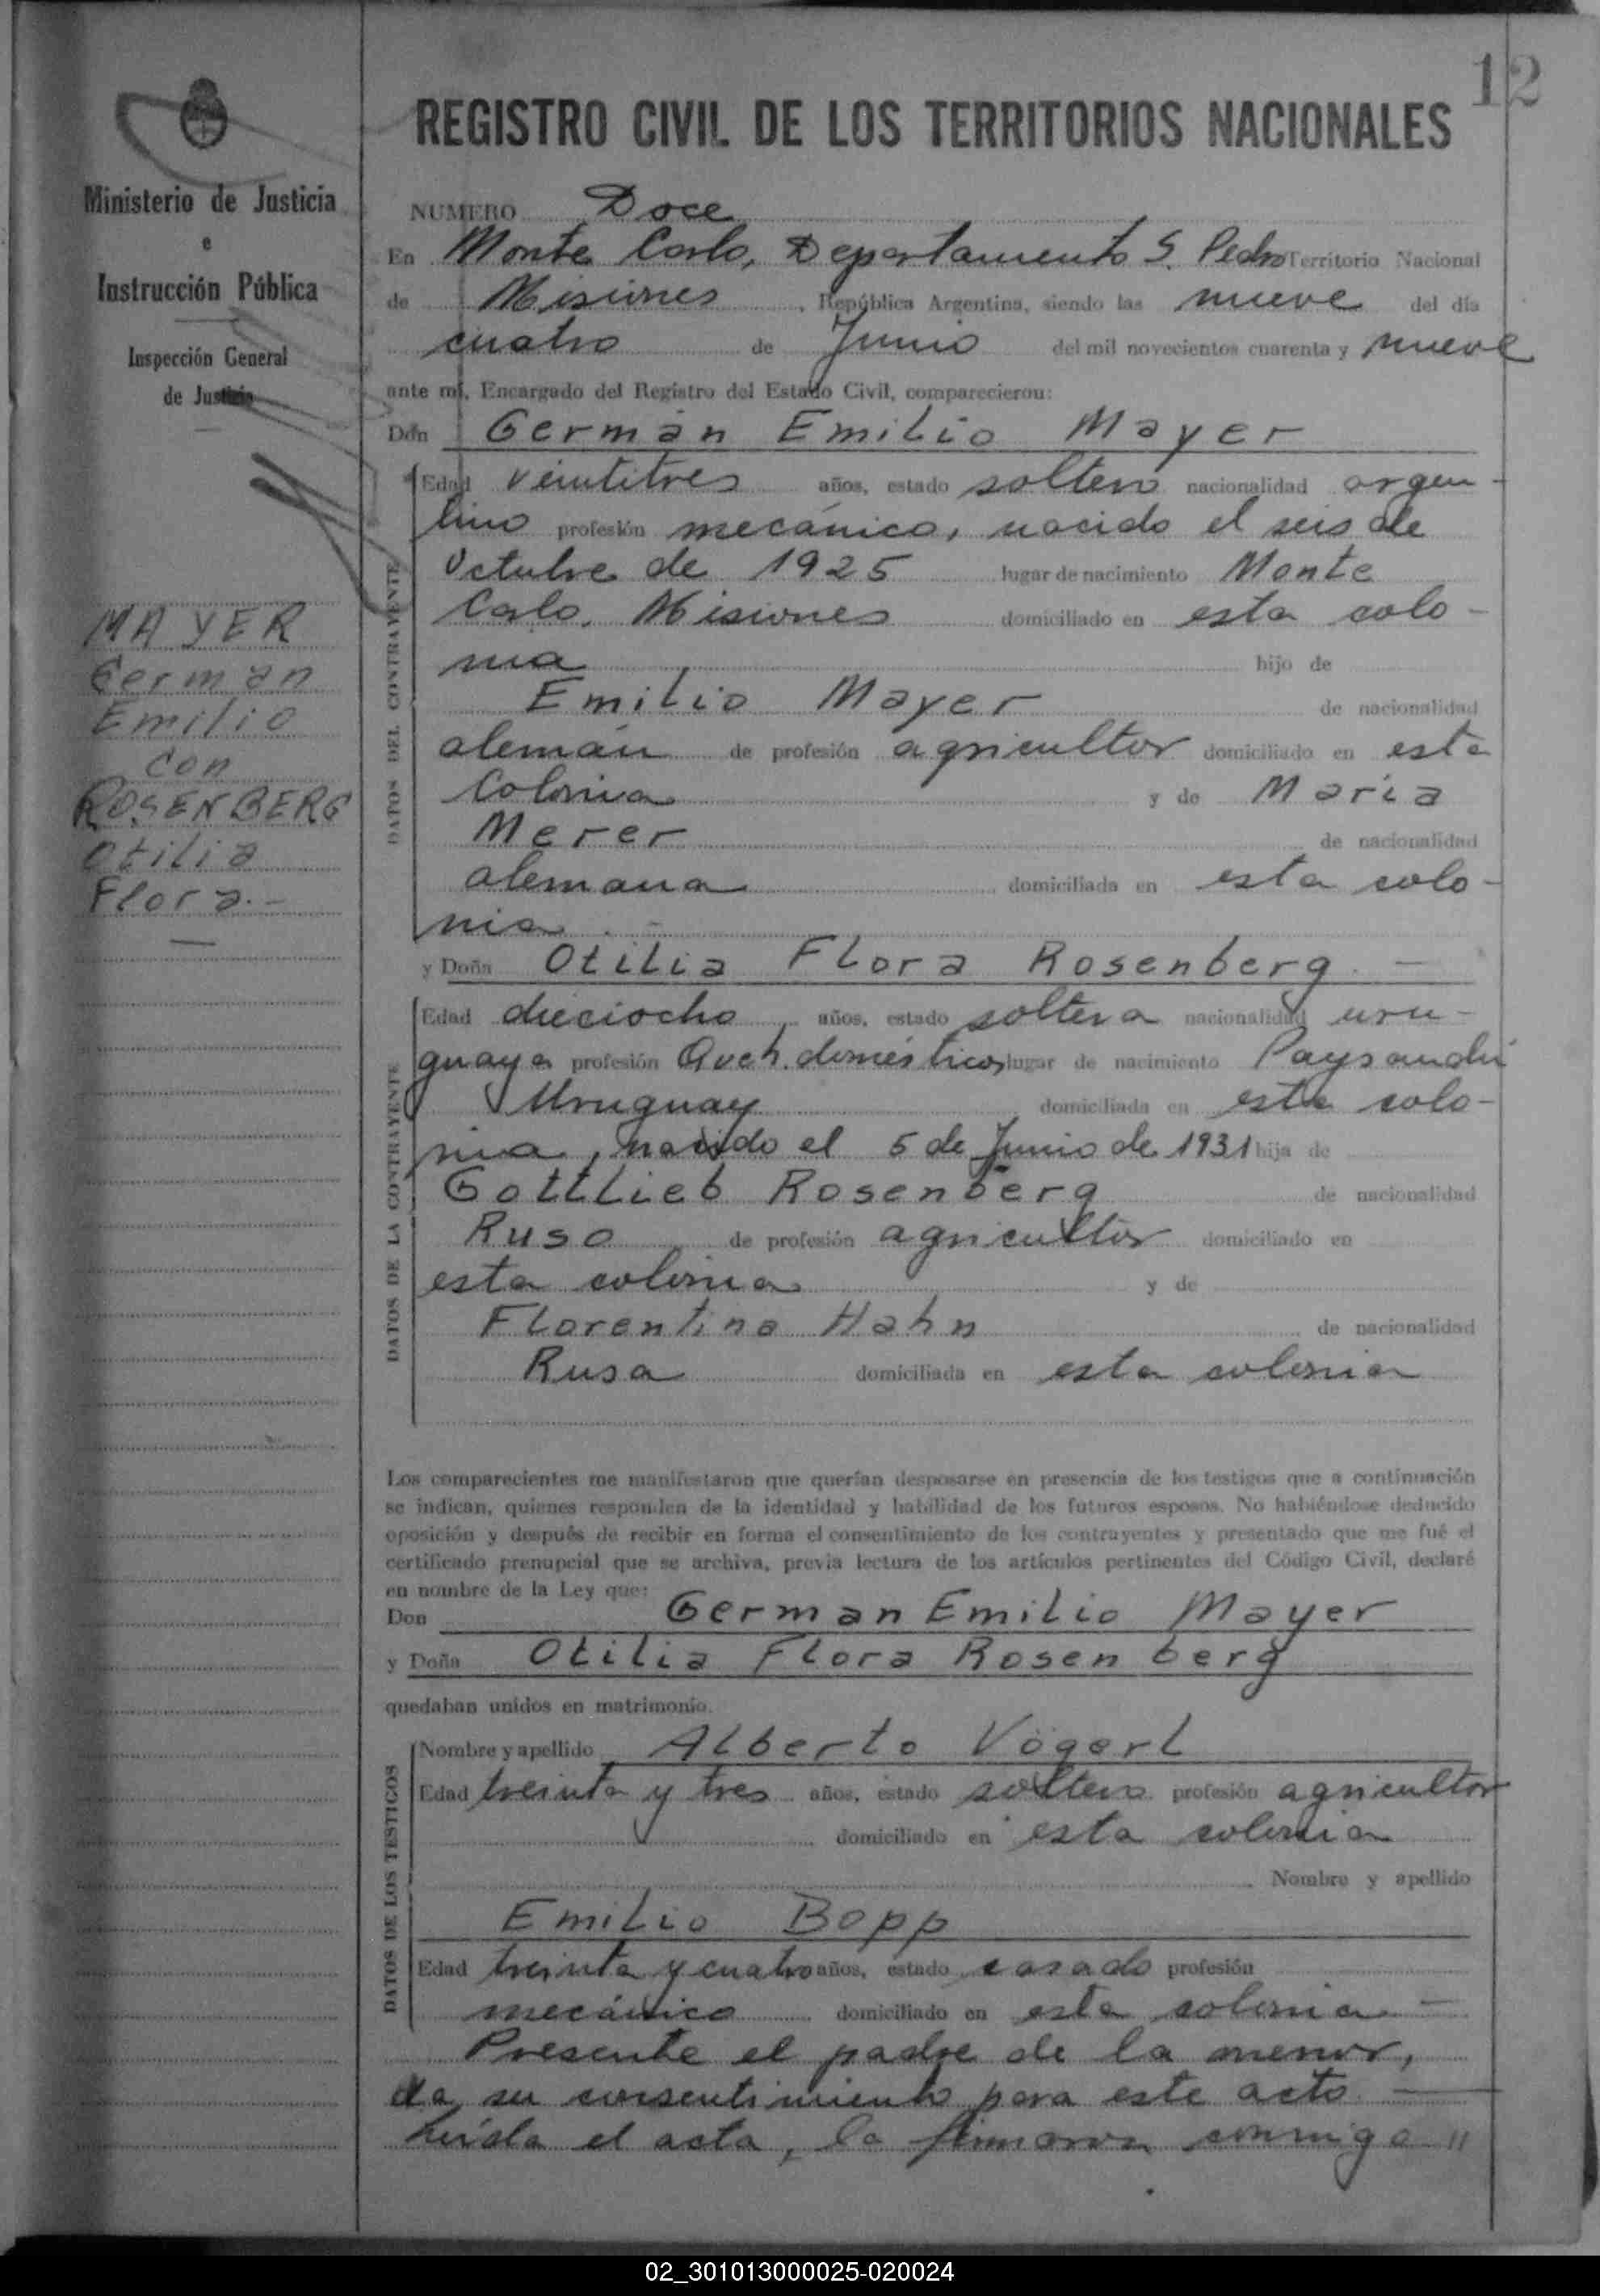 12
REGISTRO CIVIL DE LOS TERRITORIOS NACIONALES
Ministerio de Justicia
e
Instrucción Pública
Inspección General
de Justicia
MAYER
German
Emilio
con
ROSENBERG
Otilia
Flora.-
NUMERO Doce
En Monte Carlo, Departamento S. Pedro Territorio Nacional
de Misiones, República Argentina, siendo las nueve del día
cuatro de Junio del mil novecientos cuarenta y nueve
ante mí, Encargado del Registro del Estado Civil, comparecieron:
Don Germán Emilio Mayer
DATOS DEL CONTRAYENTE
Edad veintitres años, estado soltero nacionalidad argen-
tino profesión mecánico, nacido el seis de
Octubre de 1925 lugar de nacimiento Monte
Carlo, Misiones domiciliado en esta colo-
nia hijo de
Emilio Mayer de nacionalidad
alemán de profesión agricultor domiciliado en esta
Colonia y de Maria
Merer de nacionalidad
alemana domiciliada en esta colo-
nia . -
y Doña Otilia Flora Rosenberg. -
DATOS DE LA CONTRAYENTE
Edad dieciocho, años, estado soltera nacionalidad uru-
guaya profesión Queh. domésticos lugar de nacimiento Paysandú
Uruguay domiciliada en esta colo-
nia, nacido el 5 de Junio de 1931 hija de
Gottlieb Rosenberg de nacionalidad
Ruso de profesión agricultor domiciliado en
esta colonia y de
Florentina Hahn de nacionalidad
Rusa domiciliada en esta colonia
Los comparecientes me manifestaron que querían desposarse en presencia de los testigos que a continuación
se indican, quienes responden de la identidad y habilidad de los futuros esposos. No habiéndose deducido
oposición y después de recibir en forma el consentimiento de los contrayentes y presentado que me fué el
certificado prenupcial que se archiva, previa lectura de los artículos pertinentes del Código Civil, declaré
en nombre de la Ley que:
Don German Emilio Mayer
y Doña Otilia Flora Rosenberg
quedaban unidos en matrimonio.
DATOS DE LOS TESTIGOS
Nombre y apellido Alberto Vögerl
Edad treinta y tres años, estado soltero profesión agricultor
domiciliado en esta colonia
Nombre y apellido
Emilio Bopp
Edad treinta y cuatro años, estado casado profesión
mecánico domiciliado en esta colonia -
Presente el padre de la menor,
da su consentimiento para este acto
Leída el acta, la firmaron conmigo "
02_301013000025-020024